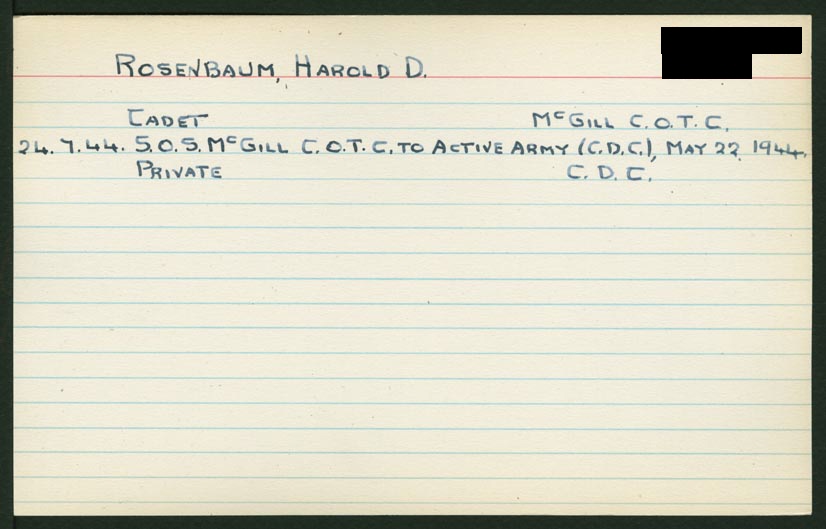 ROSENBAUM, HAROLD D.
CADET McGILL C.O.T.C.
24.7.44. S.O.S. McGILL C.O.T.C. TO ACTIVE ARMY (C.D.C.), MAY 22 1944.
PRIVATE C.D.C.